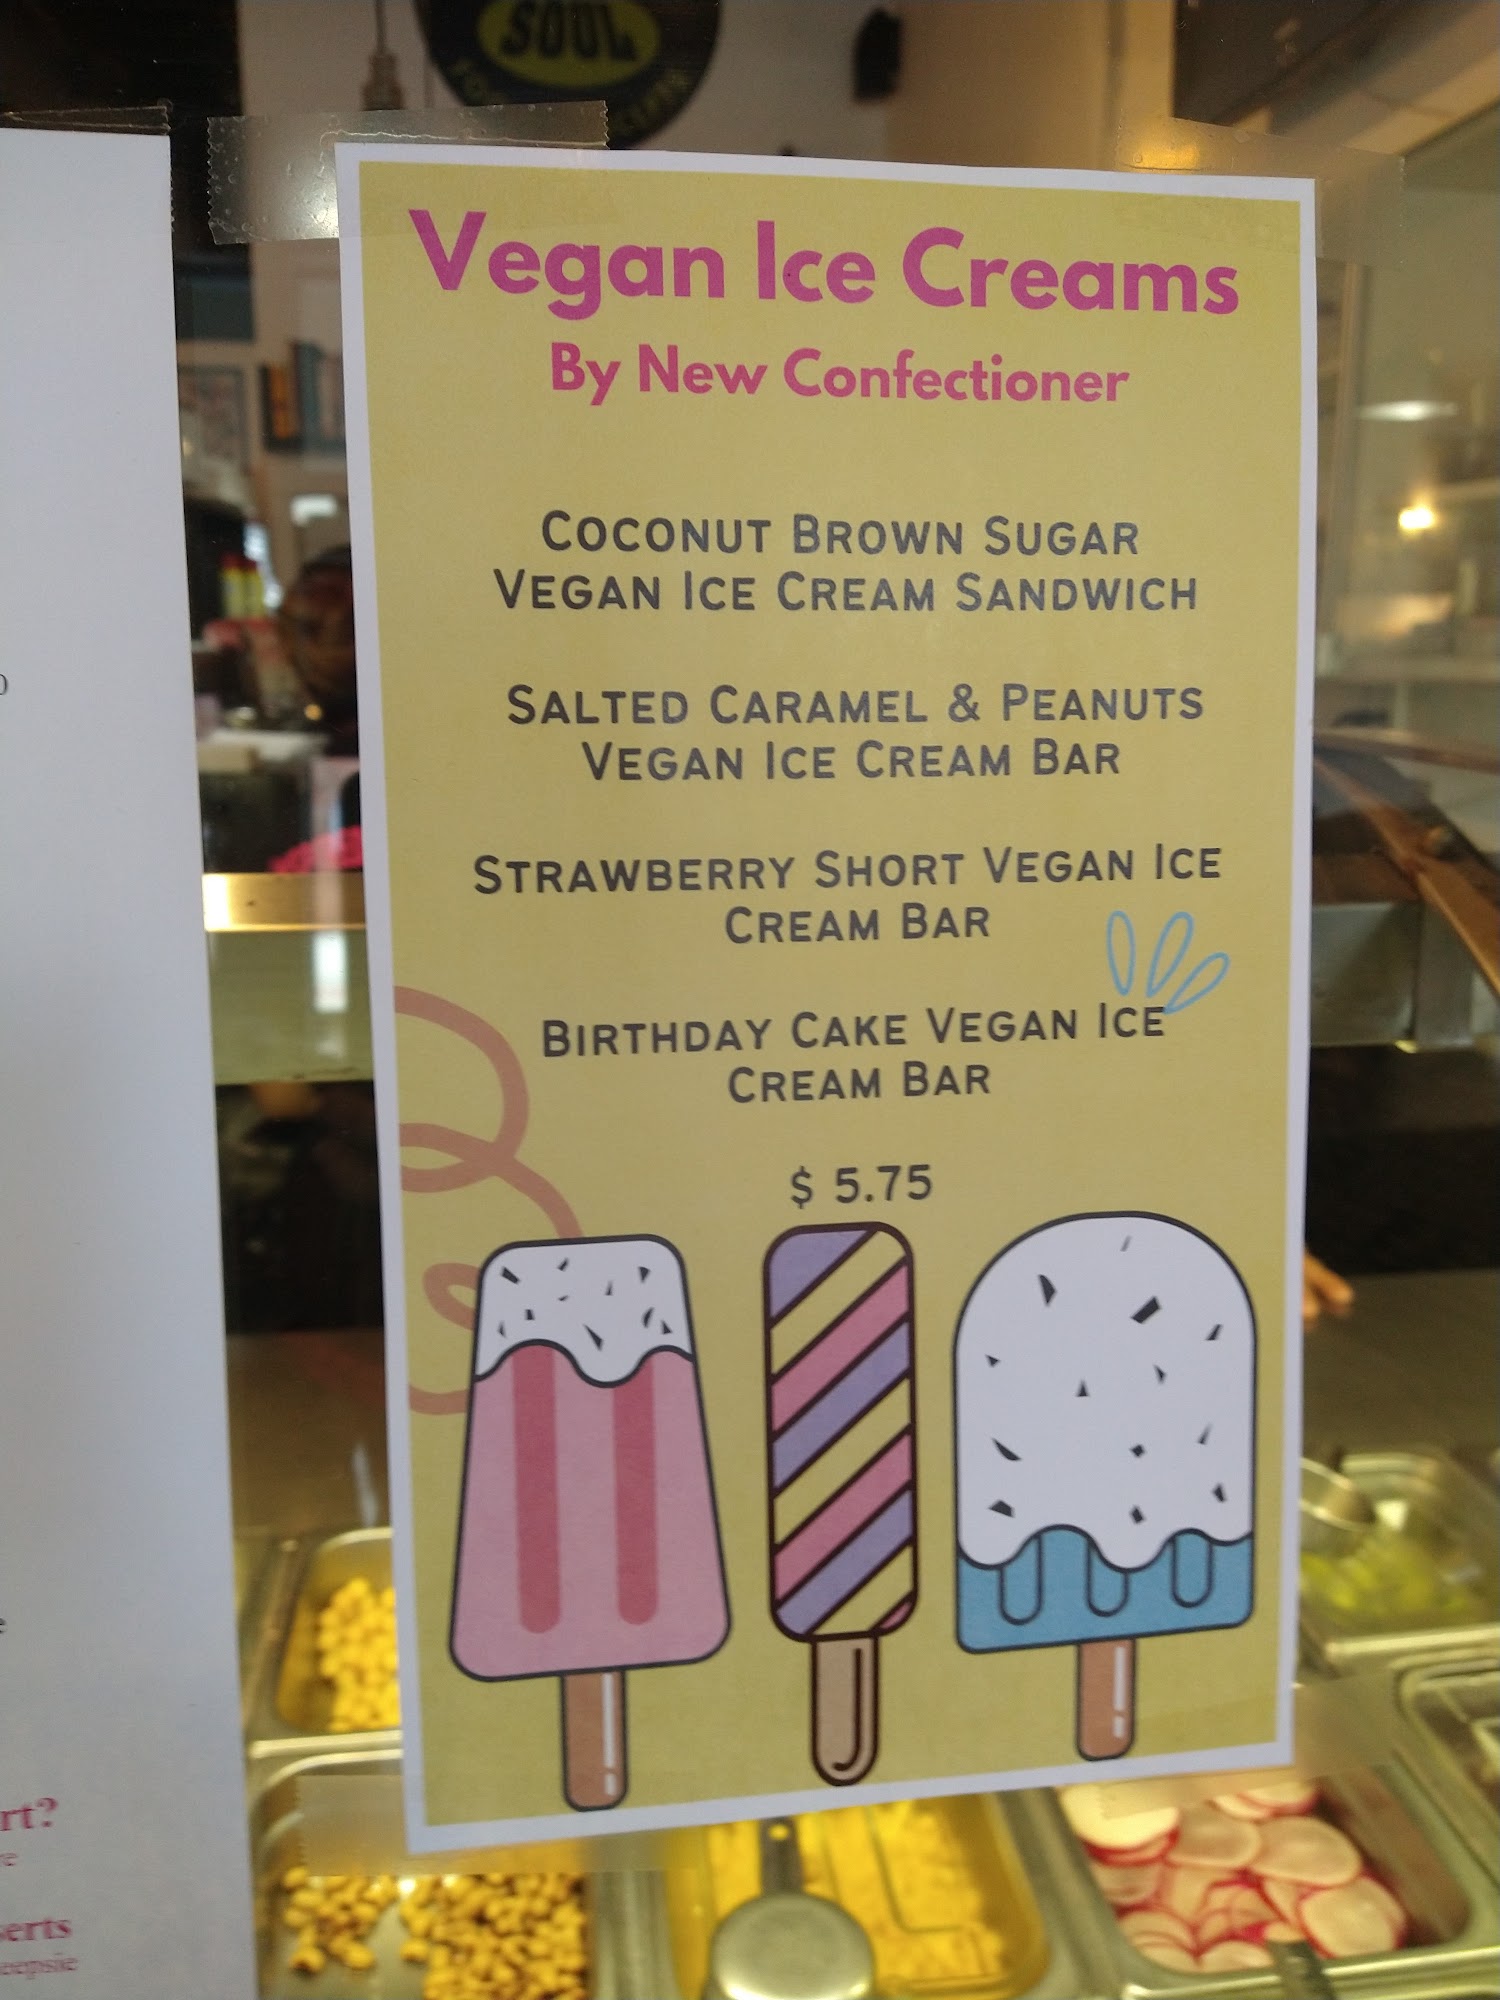 SOUL
Vegan Ice Creams
By New Confectioner
COCONUT BROWN SUGAR
VEGAN ICE CREAM SANDWICH
SALTED CARAMEL & PEANUTS
VEGAN ICE CREAM BAR
STRAWBERRY SHORT VEGAN ICE
CREAM BAR
BIRTHDAY CAKE VEGAN ICE
CREAM BAR
$ 5.75
rt?
erts
eepsie